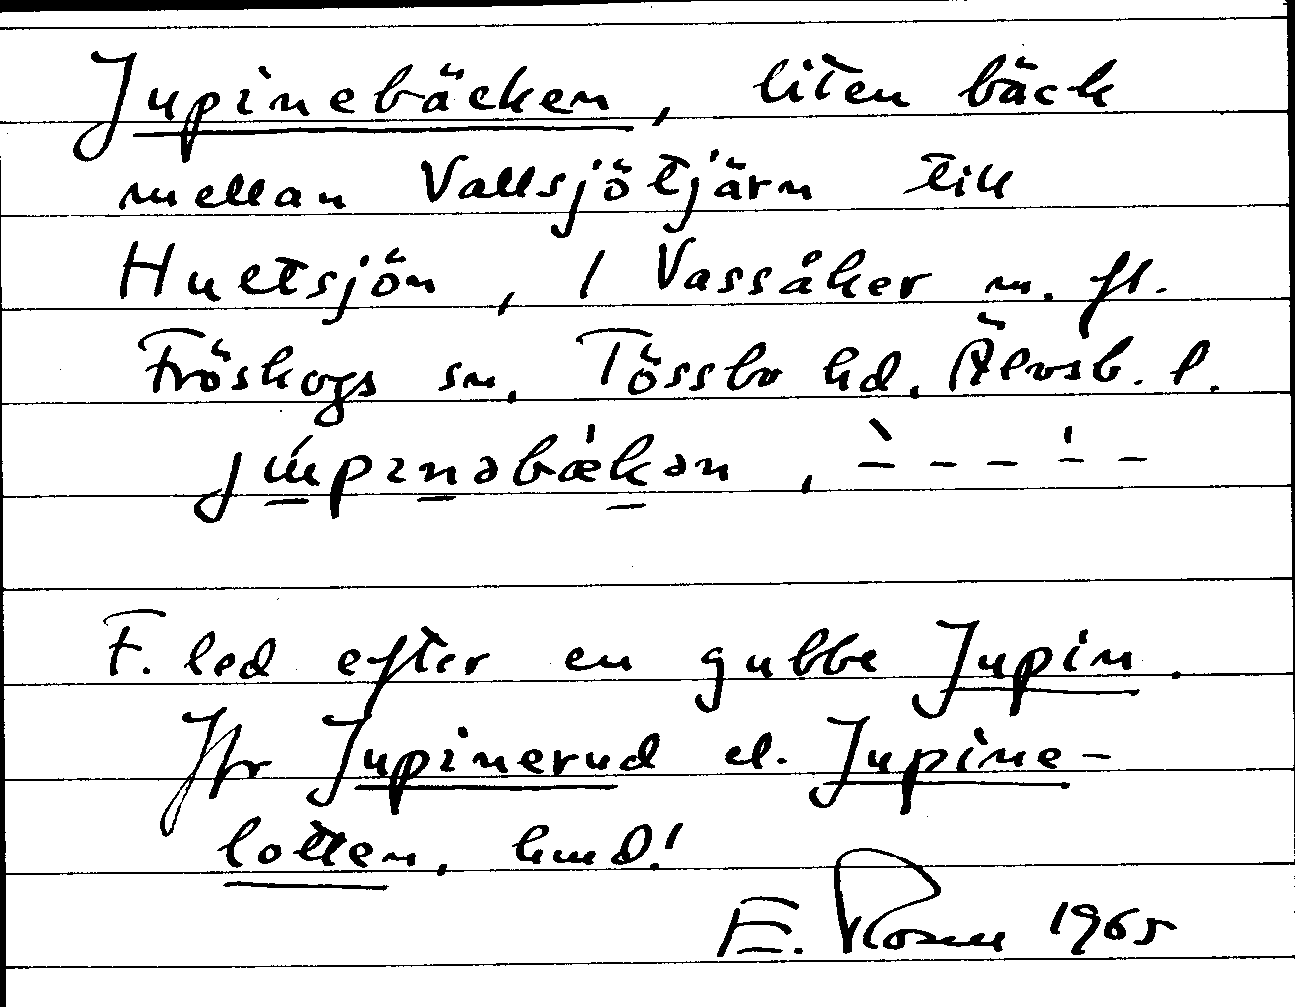 Jupinebäcken, liten bäck
mellan Vallsjötjärn till
Hultsjön, / Vassåker m. fl.
Fröskogs sn, Tössbo hd, Älvsb. l.
jupinəbækən, ̀– – – ̍– –
F. led efter en gubbe Jupin.
Jfr Jupinerud el. Jupine-
lotten, hmd!
E. Rosell 1965